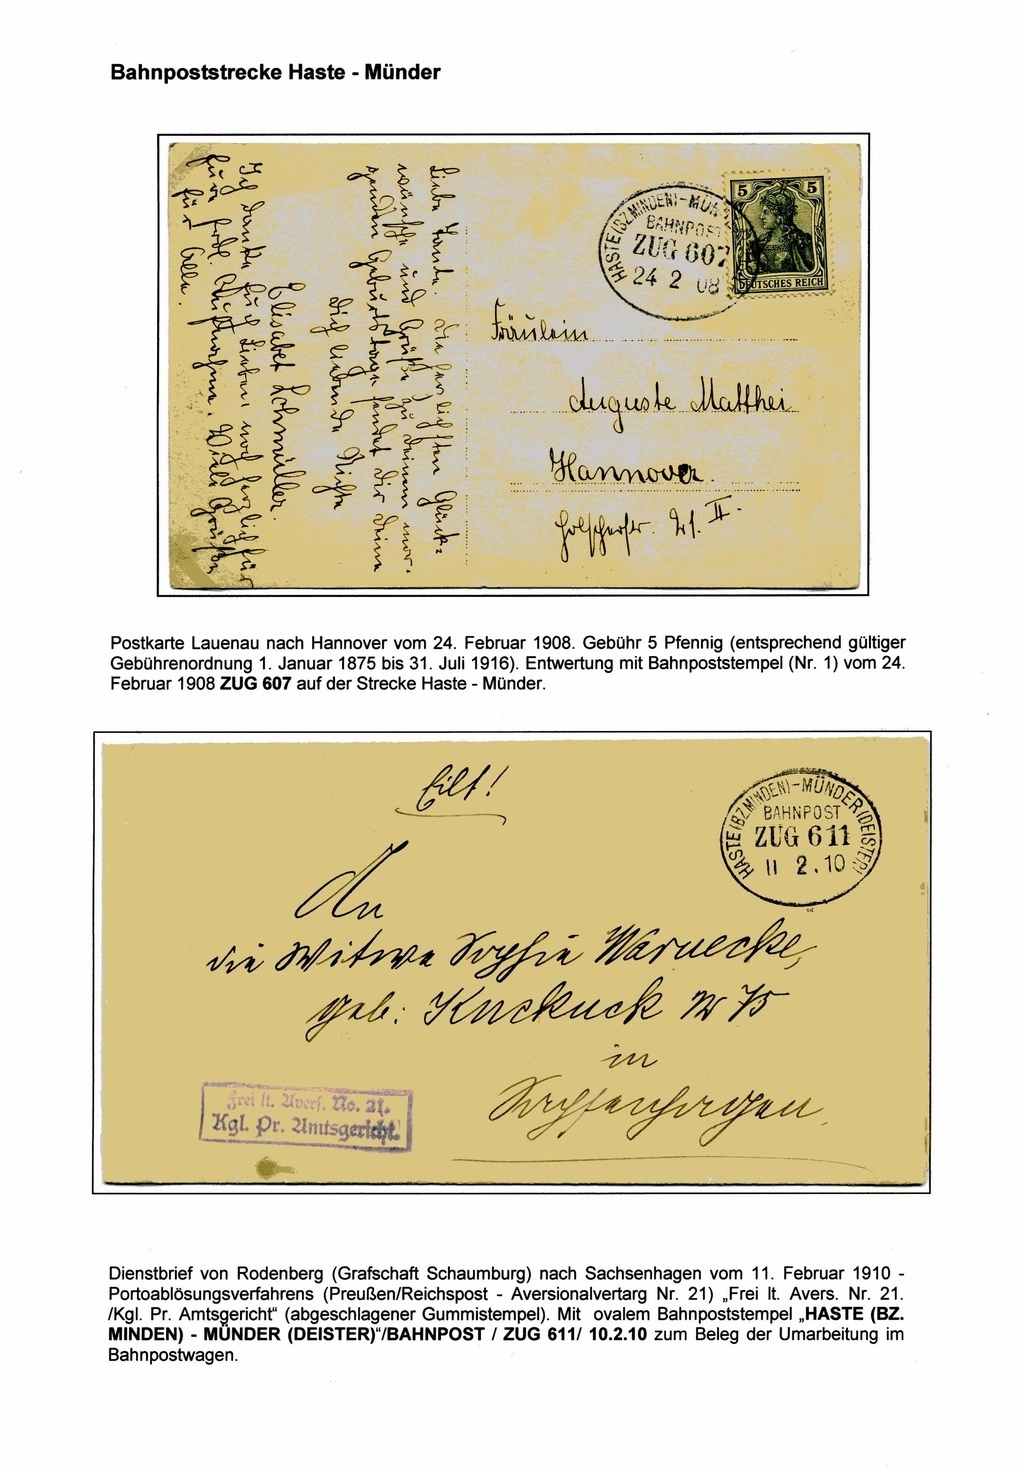 Bahnpoststrecke Haste - Münder
Liebe Tante. Die herzlichsten Glück-
wünsche und Grüße, zu Deinem mor-
genden Geburtstage sendet Dir Deine
Dich liebende Nichte
Elisabet Lohmüller.
Ich danke Euch Lieben noch herzlich für
Eure frdl. Aufnahme. Viele Grüße
für Alle.
HASTE (BZ. MINDEN) - MÜN
BAHNPOST
ZUG 607
24 2 08
5 5
DEUTSCHES REICH
Fräulein
Auguste Matthei
Hannover.
21. II.
Postkarte Lauenau nach Hannover vom 24. Februar 1908. Gebühr 5 Pfennig (entsprechend gültiger
Gebührenordnung 1. Januar 1875 bis 31. Juli 1916). Entwertung mit Bahnpoststempel (Nr. 1) vom 24.
Februar 1908 ZUG 607 auf der Strecke Haste - Münder.
Eilt!
HASTE (BZ. MINDEN) - MÜNDER (DEISTER)
BAHNPOST
ZUG 611
11 2.10
An
die Witwe Sophie Warnecke,
geb: Knckuck № 75
in
Sachsenhagen.
Frei lt. Avers. No. 21.
Kgl. Pr. Amtsgericht.
Dienstbrief von Rodenberg (Grafschaft Schaumburg) nach Sachsenhagen vom 11. Februar 1910 -
Portoablösungsverfahrens (Preußen/Reichspost - Aversionalvertarg Nr. 21) „Frei lt. Avers. Nr. 21.
/Kgl. Pr. Amtsgericht“ (abgeschlagener Gummistempel). Mit ovalem Bahnpoststempel „HASTE (BZ.
MINDEN) - MÜNDER (DEISTER)“/BAHNPOST / ZUG 611/ 10.2.10 zum Beleg der Umarbeitung im
Bahnpostwagen.